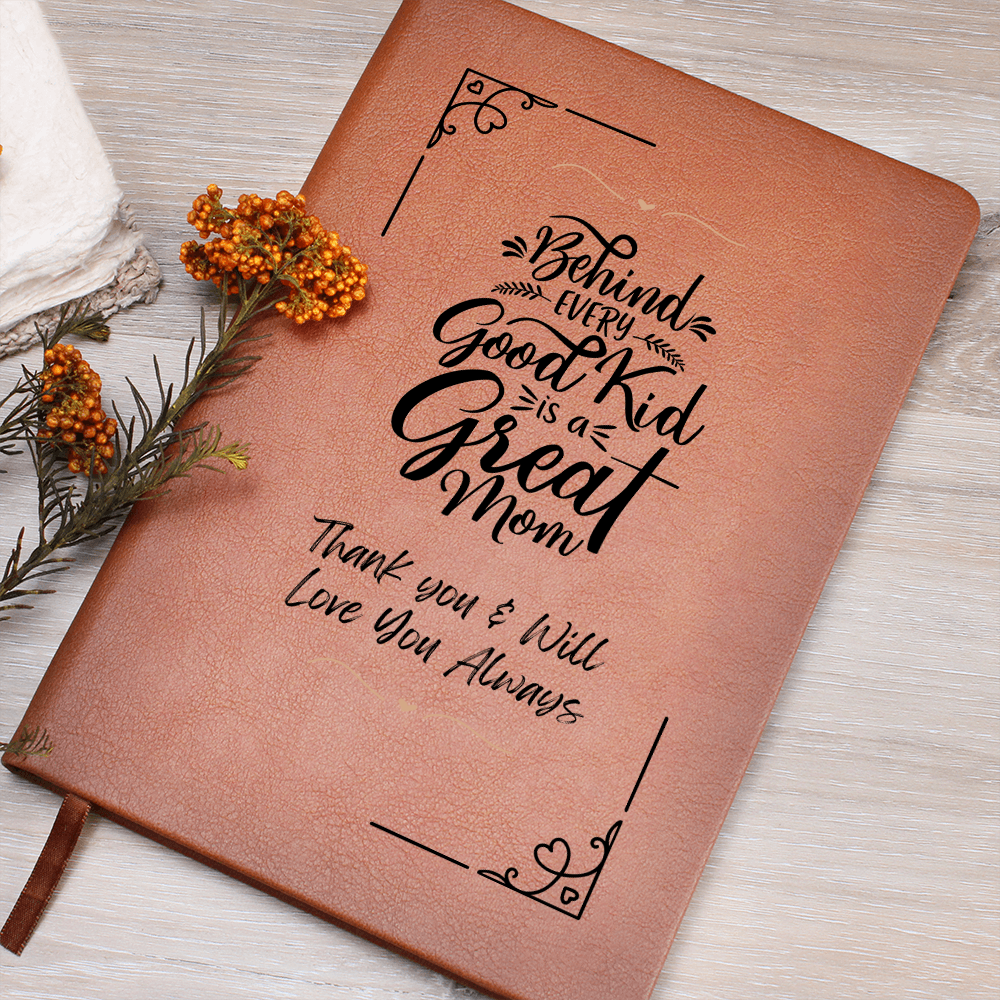 Behind
EVERY
Good Kid
is a
Great
Mom
Thank you & Will
Love You Always